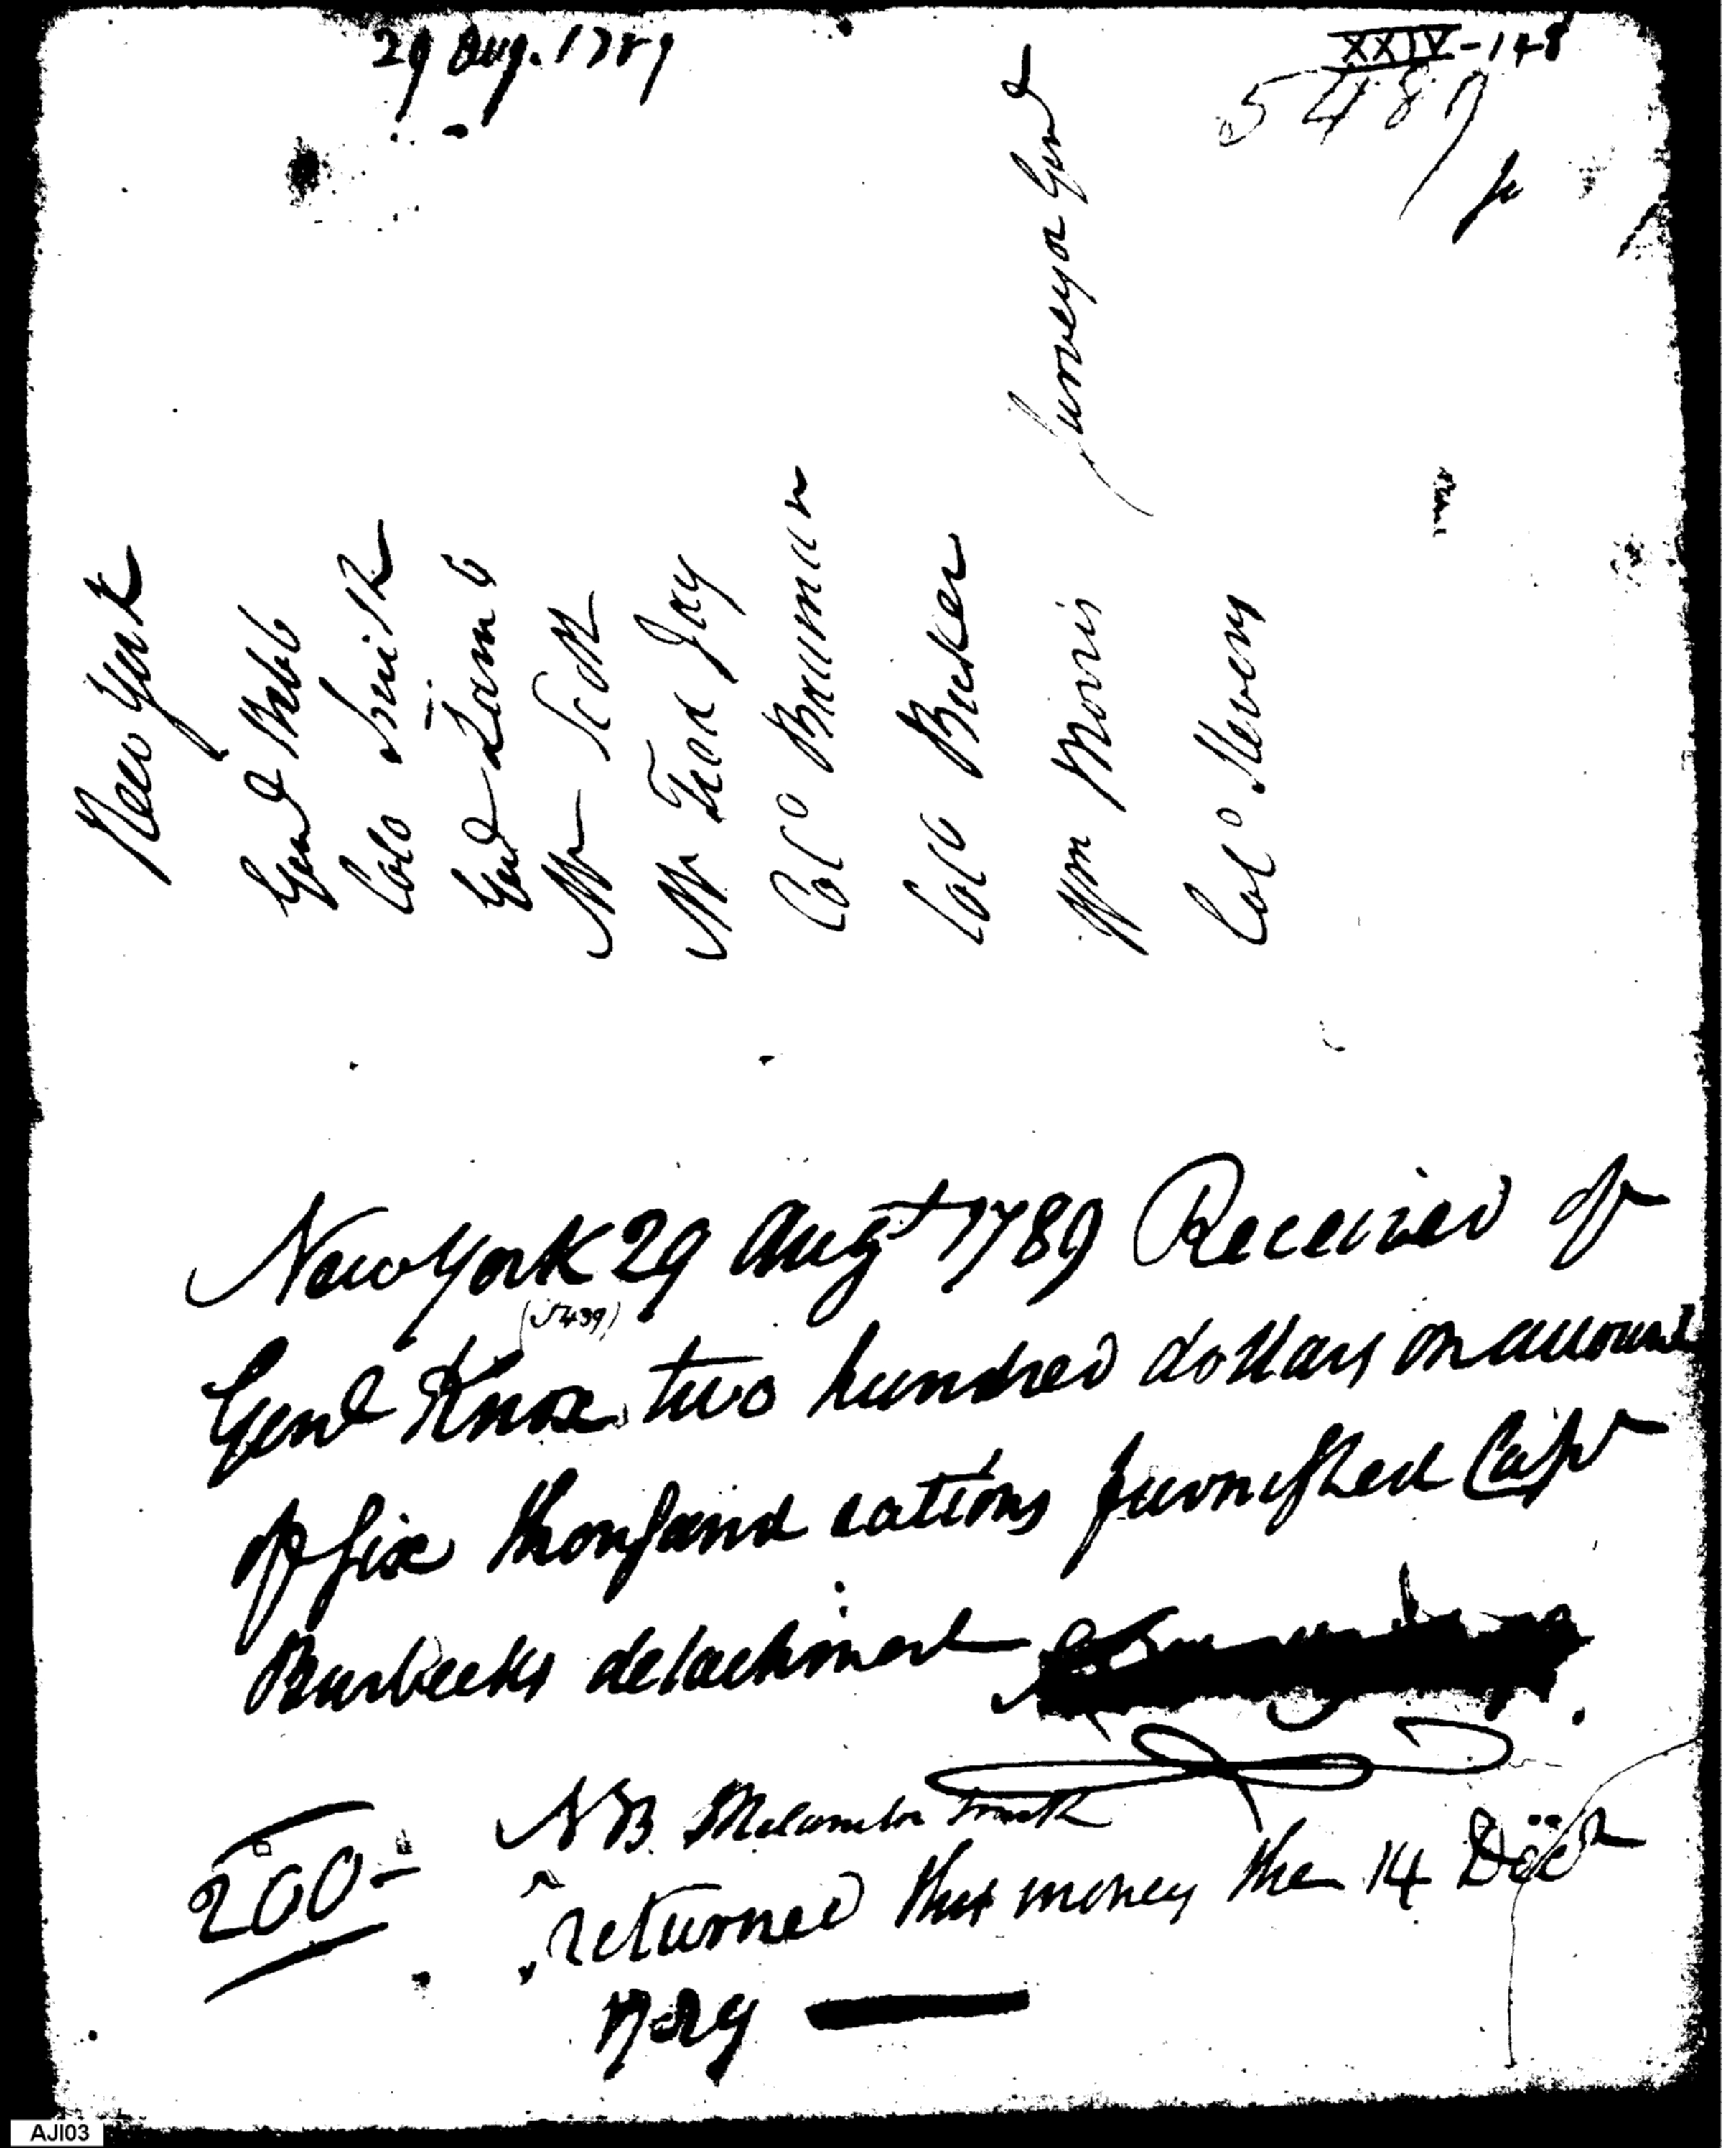 29 Aug. 1789
XXIV-148
5489
New York
Genl Webb
Colo Smith
Genl Lamb
Mr Scott
Mr Fred Jay
Colo Bauman
Colo Bicker
Wm Morris Surveyor Genl
Colo Stevens
New York 29 Augt 1789 Received of
(5439)
Genl Knox two hundred dollars on account
of six thousand rations furnished Capt
Burbecks detachment
NB Melancton Smith
200
returned this money the 14 Decr
1789
AJI03